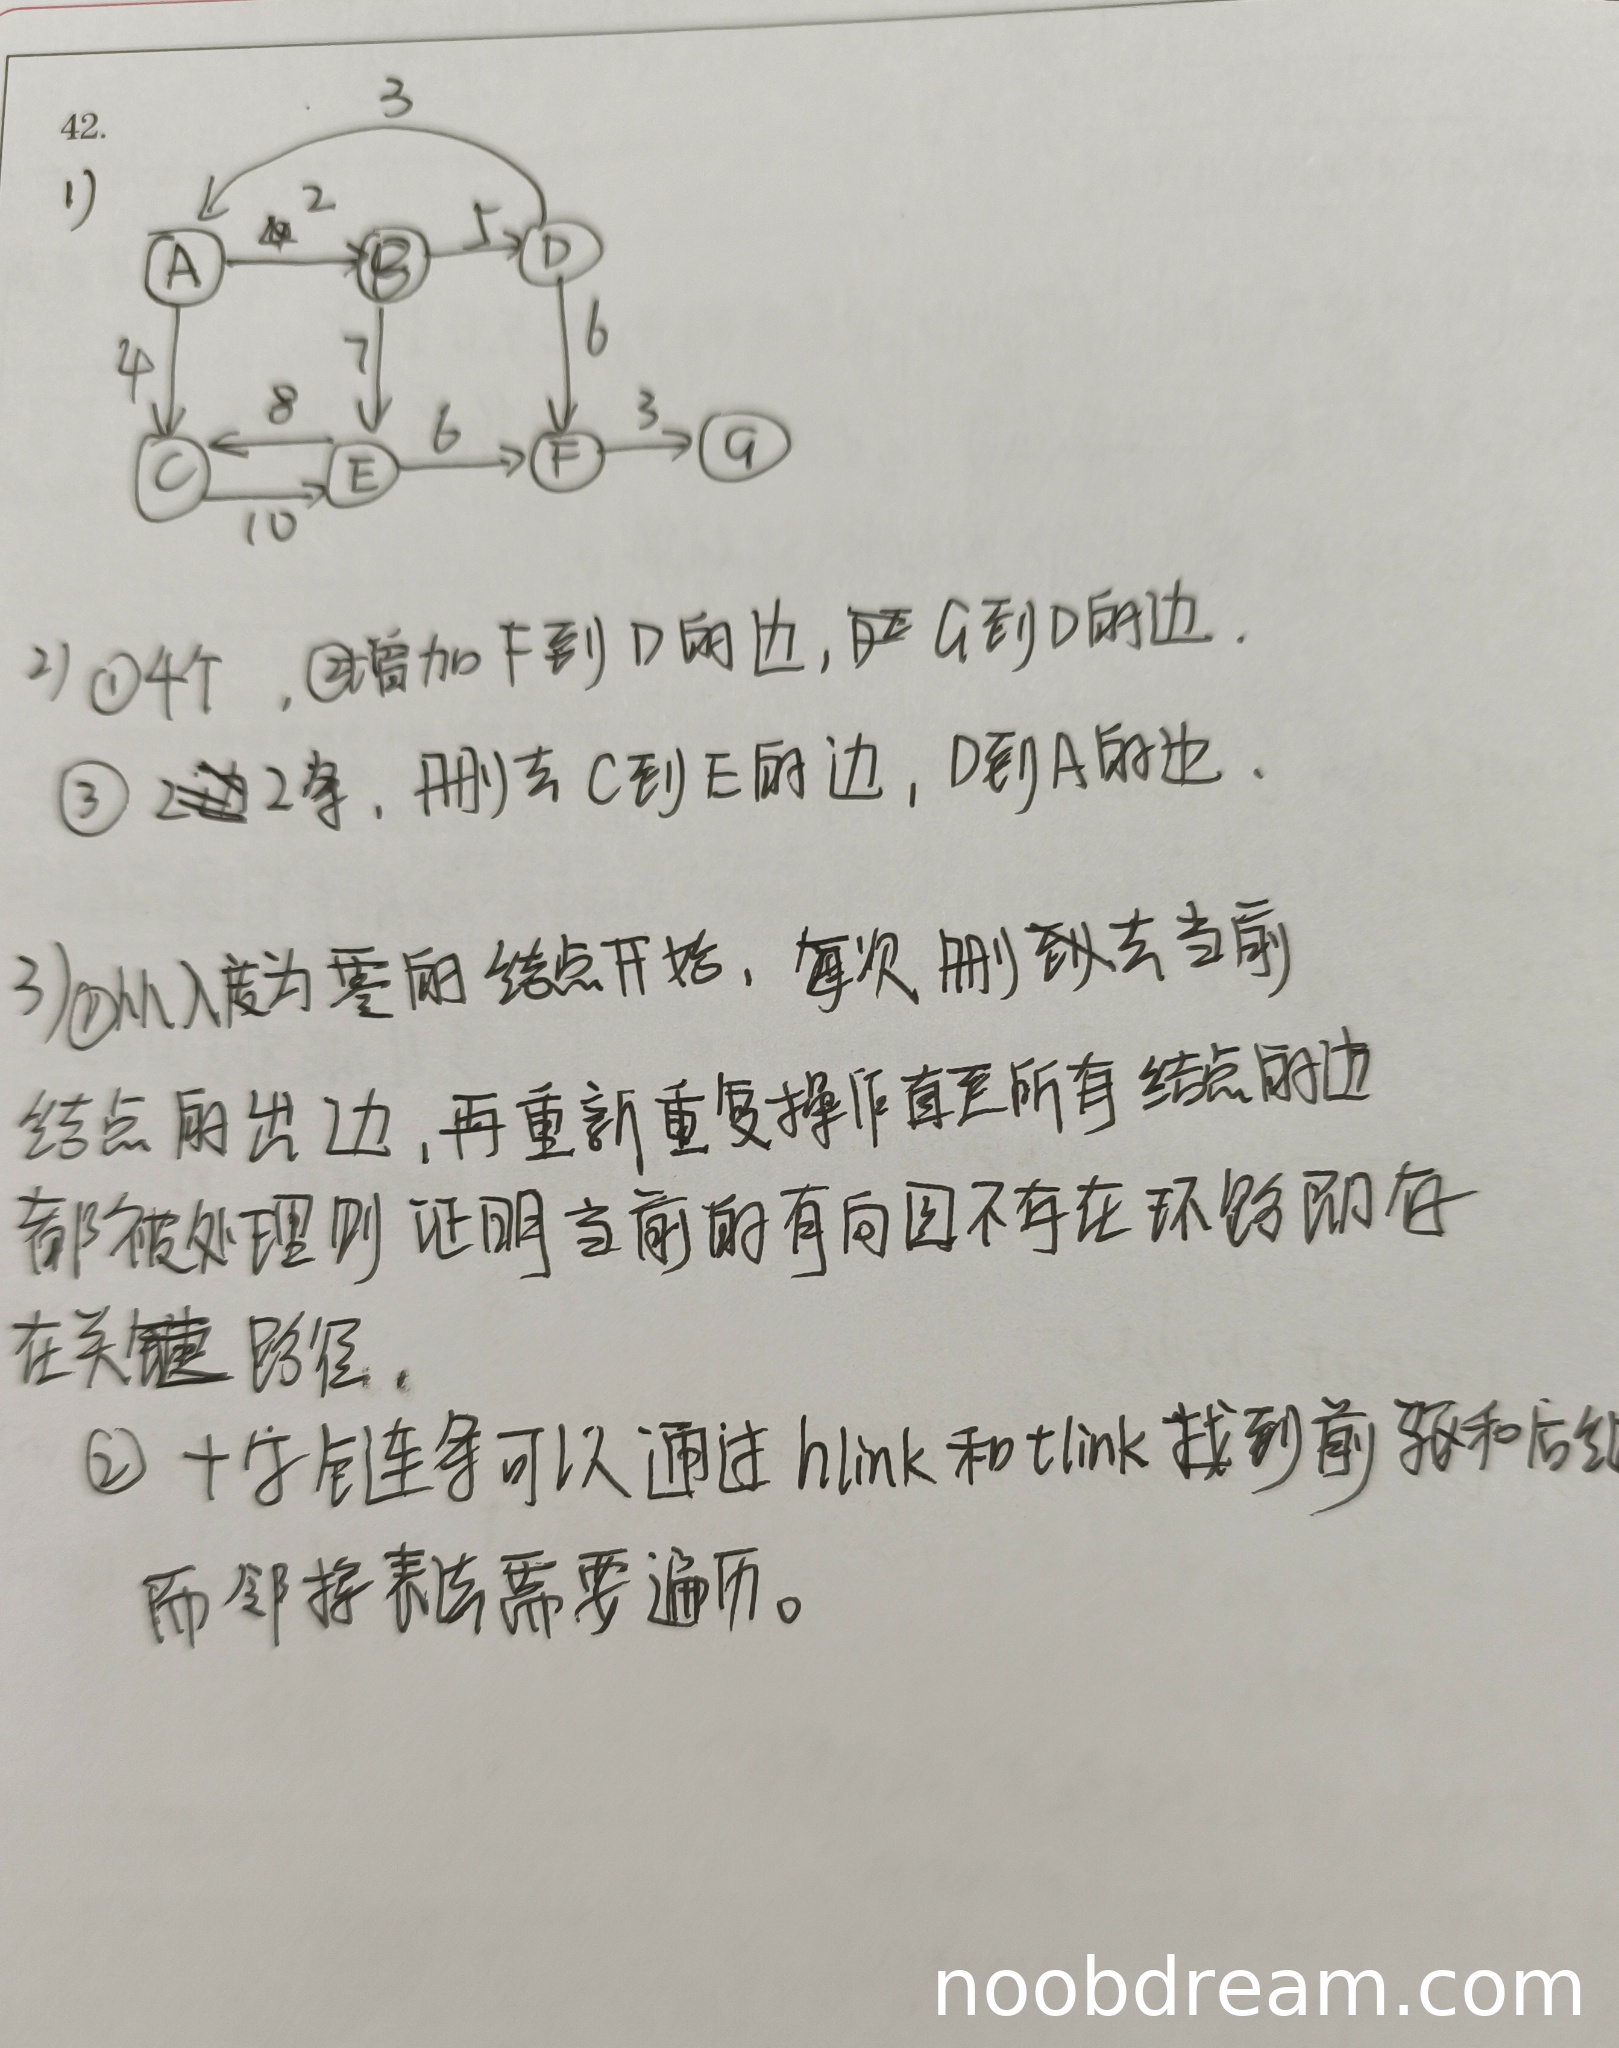 42.
1)
3
2
A
B
5
D
4
7
6
8
6
3
C
E
F
G
10
2) ①4个 , ②增加F到D的边, G到D的边.
③ 2条, 删去C到E的边, D到A的边.
3)①从入度为零的结点开始, 每次删去当前
结点的出边, 再重新重复操作直至所有结点的边
都被处理则证明当前的有向图不存在环路即存
在关键路径.
② 十字链连等可以通过hlink和tlink找到前驱和后继
而邻接表法需要遍历。
noobdream.com